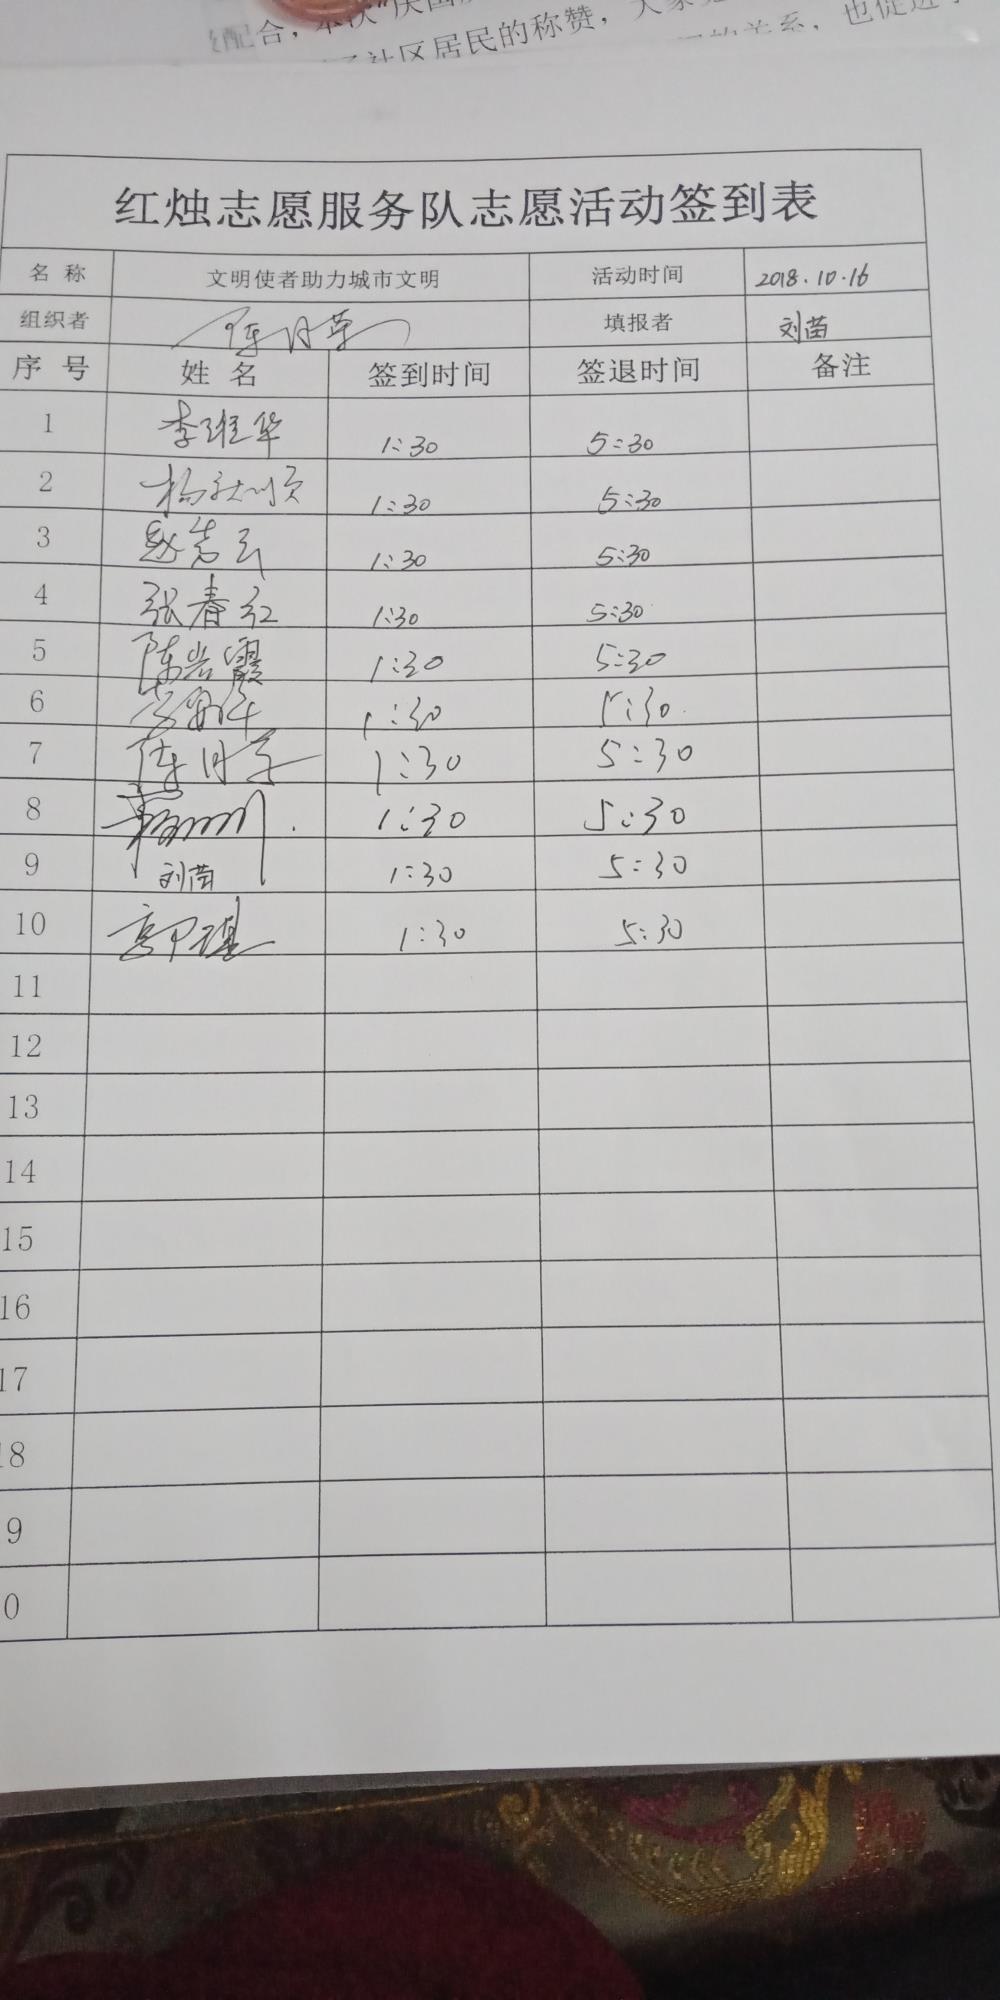 配合，本次“庆国
社区居民的称赞，大家
的关系，也促进了
红烛志愿服务队志愿活动签到表
名称 文明使者助力城市文明 活动时间 2018.10.16
组织者 填报者 刘苗
序号 姓名 签到时间 签退时间 备注
1 1:30 5:30
2 1:30 5:30
3 1:30 5:30
4 张春红 1:30 5:30
5 陈岩霞 1:30 5:30
6 1:30 5:30
7 1:30 5:30
8 1:30 5:30
9 刘苗 1:30 5:30
10 1:30 5:30
11
12
13
14
15
16
17
18
9
0